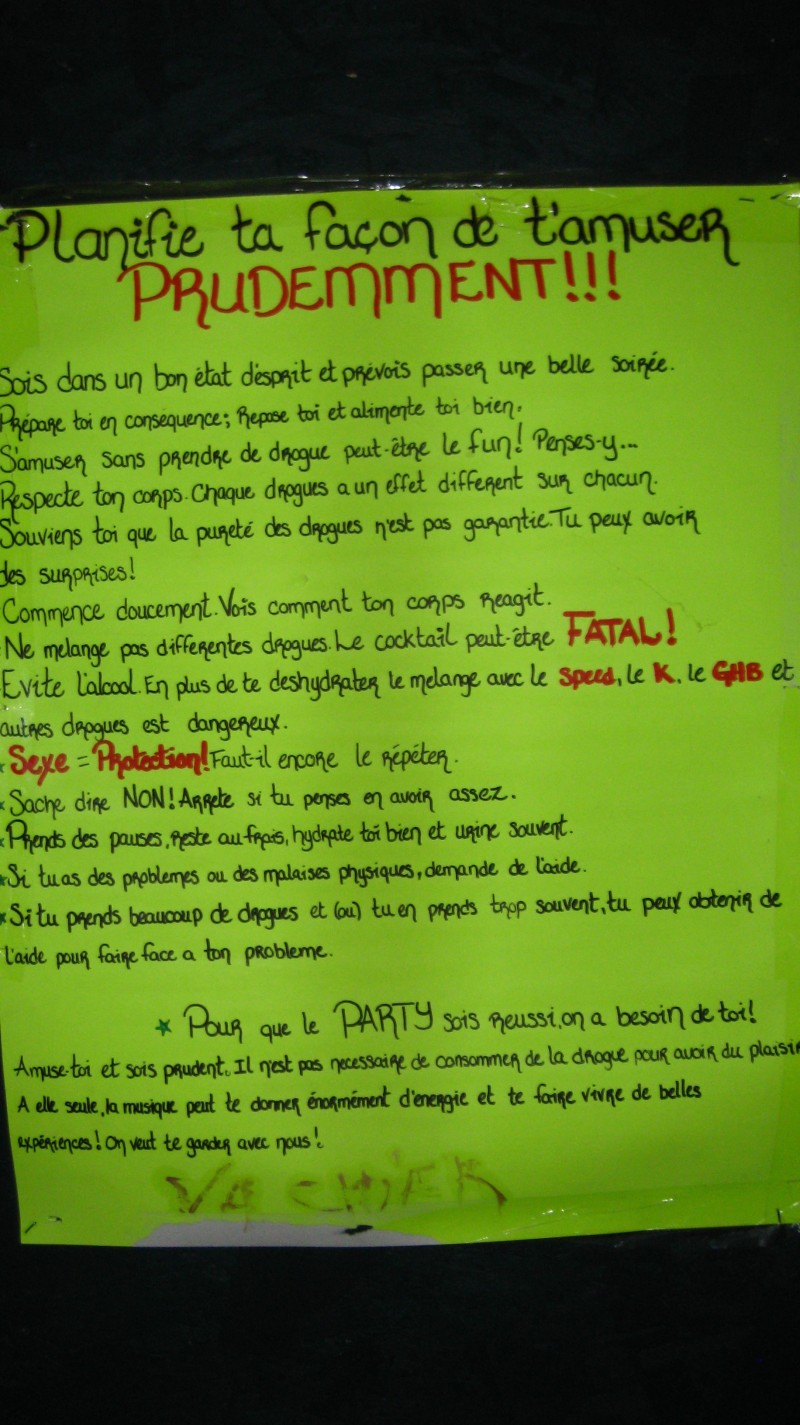 Planifie ta façon de t'amuser
PRUDEMMENT!!!
Sois dans un bon état d'esprit et prévois passer une belle soirée.
Prépare toi en conséquence; Repose toi et alimente toi bien.
S'amuser sans prendre de drogue peut-être le fun! Penses-y...
Respecte ton corps. Chaque drogues a un effet different sur chacun.
Souviens toi que la pureté des drogues n'est pas garantie. Tu peux avoir
des surprises!
Commence doucement. Vois comment ton corps reagit.
Ne melange pas differentes drogues. Le cocktail peut-être FATAL!
Evite l'alcool. En plus de te deshydrater le melange avec le Speed, le K, le GHB et
autres drogues est dangereux.
* Sexe = Protection! Faut-il encore le répéter.
* Sache dire NON! Arrete si tu penses en avoir assez.
* Prends des pauses, reste au frais, hydrate toi bien et urine souvent.
* Si tu as des problemes ou des malaises physiques, demande de l'aide.
* Si tu prends beaucoup de drogues et (ou) tu en prends trop souvent, tu peux obtenir de
l'aide pour faire face a ton probleme.
* Pour que le PARTY sois reussi, on a besoin de toi!
Amuse-toi et sois prudent. Il n'est pas necessaire de consommer de la drogue pour avoir du plaisir
A elle seule, la musique peut te donner énormément d'energie et te faire vivre de belles
expériences! On veut te garder avec nous!
VA CHIER